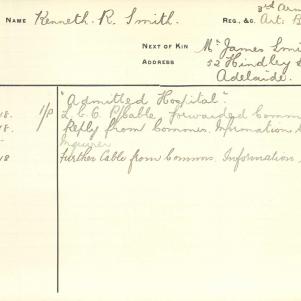 3rd
NAME Kenneth. R. Smith. REG., &C. Art: B
NEXT OF KIN Mr. James Smi
ADDRESS 52 Hindley S
Adelaide.
"Admitted Hospital".
18. 1/P L.C.O. P/Cable Forwarded Comm
18. Reply from Commrs. Information
Inquirer
18 Further Cable from Commrs. Information